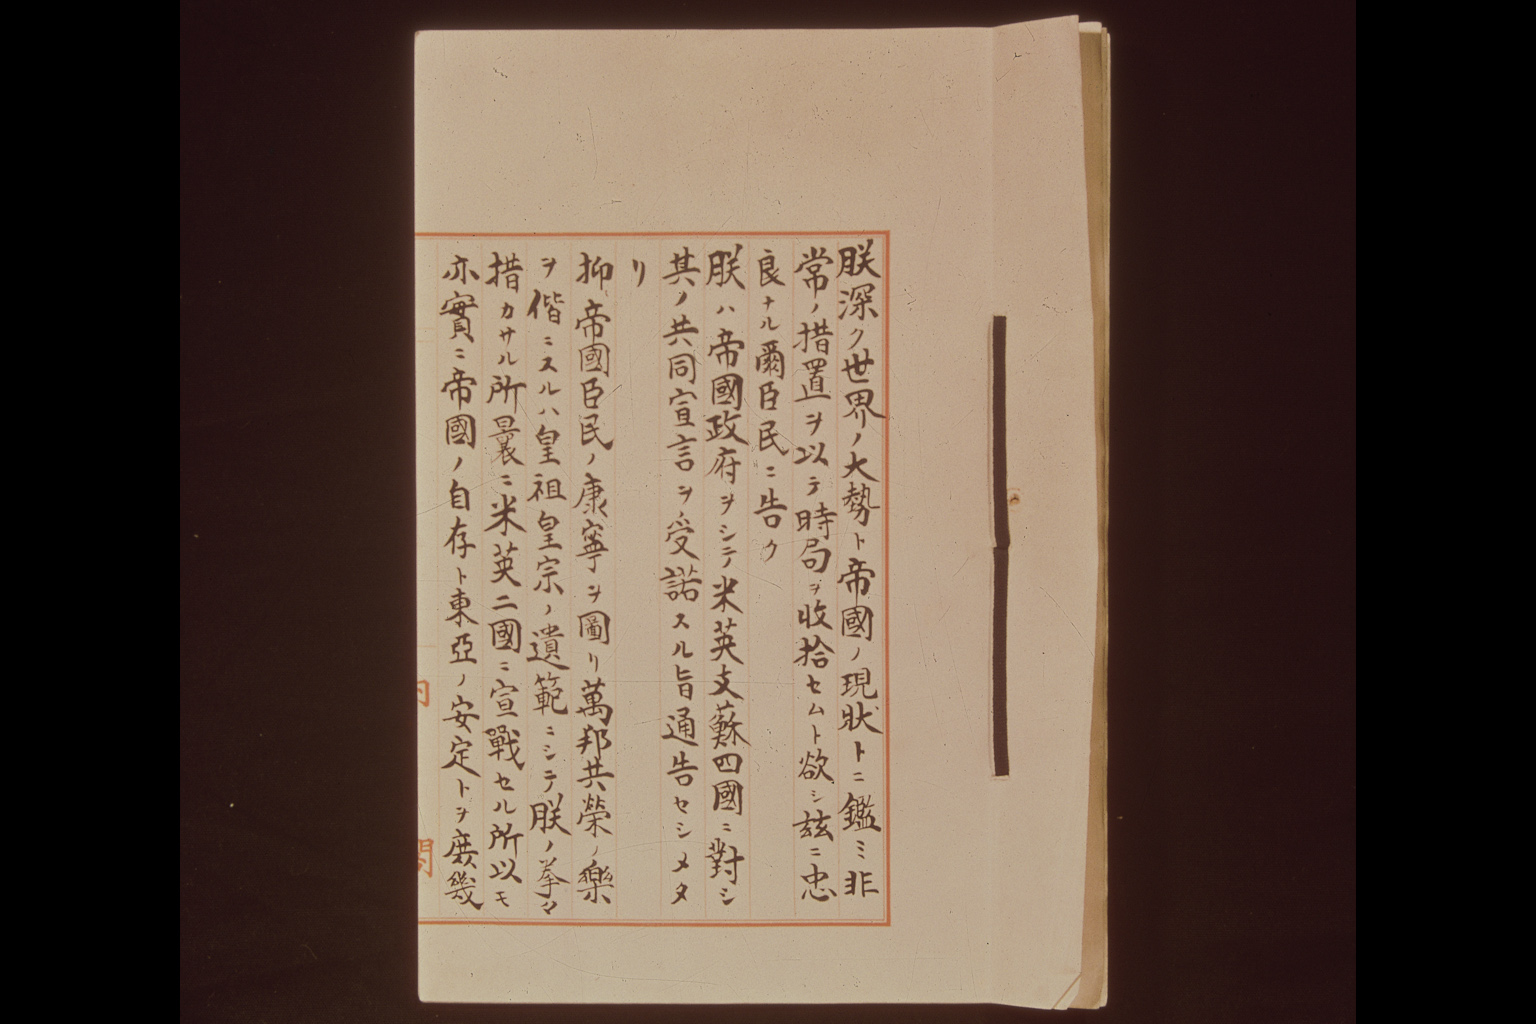 朕深ク世界ノ大勢ト帝國ノ現狀トニ鑑ミ非
常ノ措置ヲ以テ時局ヲ收拾セムト欲シ茲ニ忠
良ナル爾臣民ニ告ク
朕ハ帝國政府ヲシテ米英支蘇四國ニ對シ
其ノ共同宣言ヲ受諾スル旨通告セシメタ
リ
抑帝國臣民ノ康寧ヲ圖リ萬邦共榮ノ樂
ヲ偕ニスルハ皇祖皇宗ノ遺範ニシテ朕ノ拳々
措カサル所曩ニ米英二國ニ宣戰セル所以モ
亦實ニ帝國ノ自存ト東亞ノ安定トヲ庶幾
内
閣